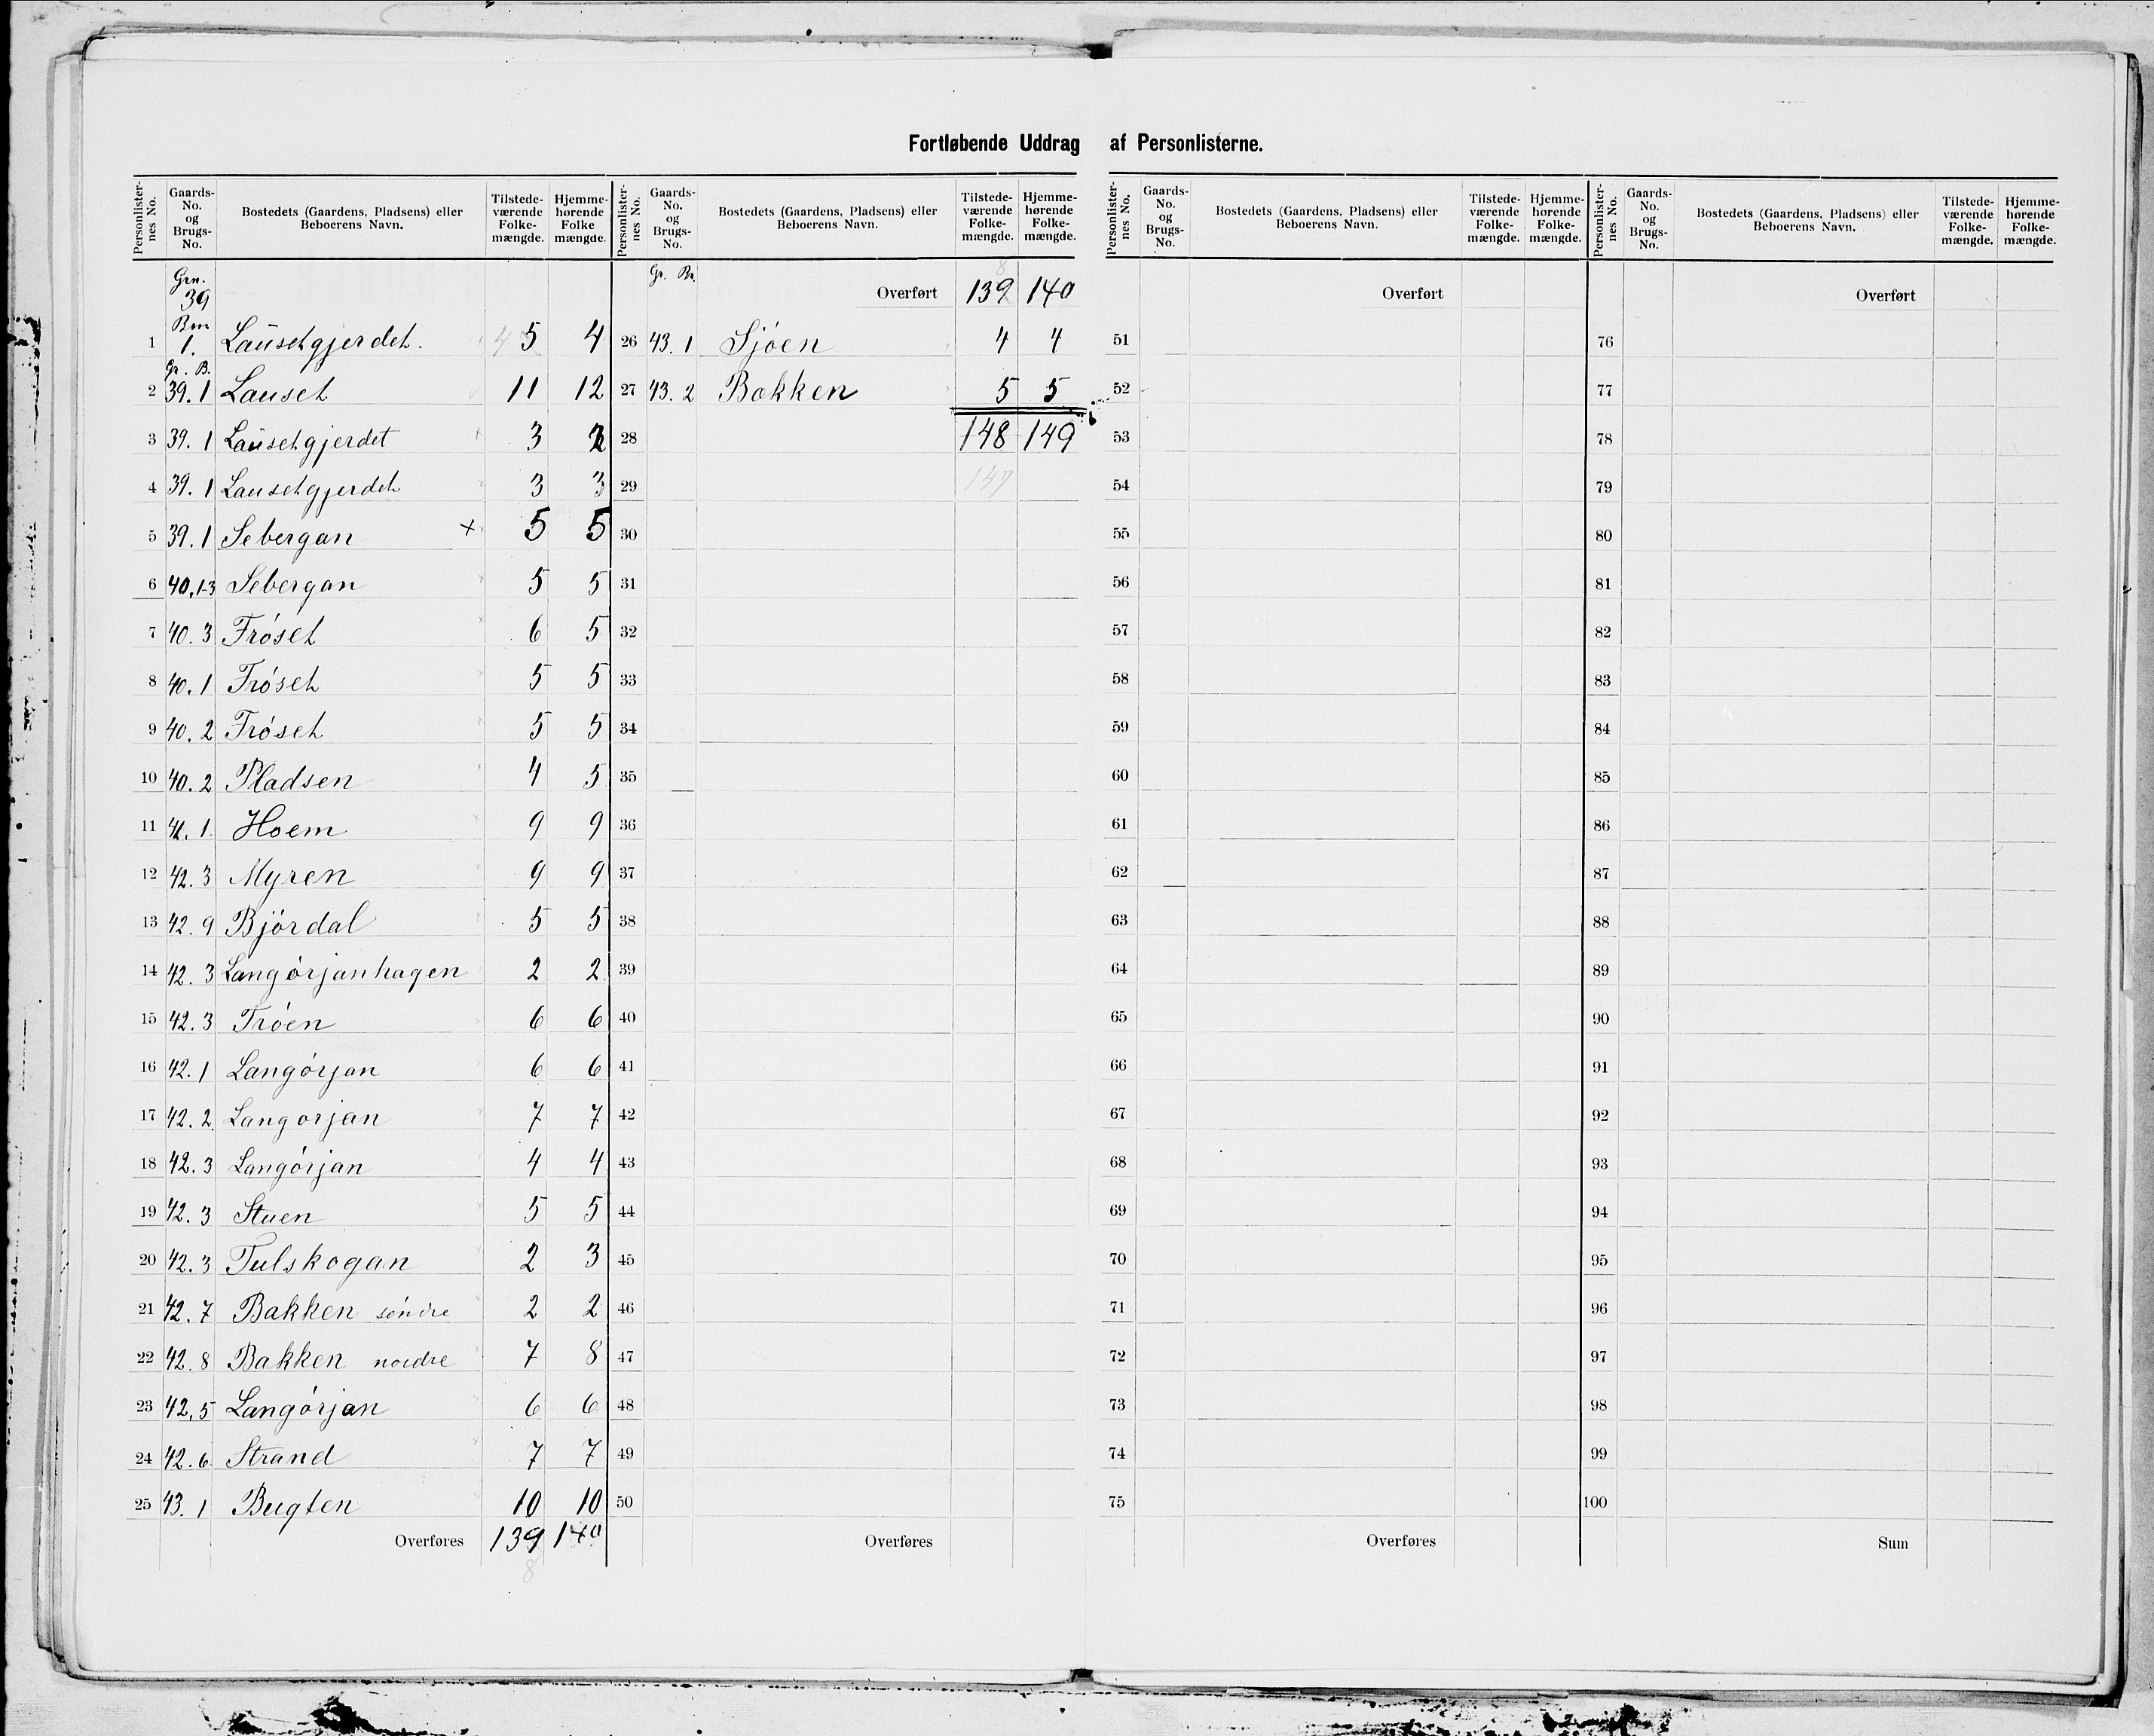 Fortløbende Uddrag af Personlisterne.
Personlister-nes No. | Gaards-No. og Brugs-No. | Bostedets (Gaardens, Pladsens) eller Beboerens Navn. | Tilstede-værende Folke-mængde. | Hjemme-hørende Folke mængde.
Grn. 39 Brn
1 1. Lausetgjerdet. 5 4
Gr. B.
2 39.1 Lauset 11 12
3 39.1 Lausetgjerdet 3
4 39.1 Lausetgjerdet 3 3
5 39.1 Sebergan × 5 5
6 40,1-3 Sebergan 5 5
7 40.3 Frøset 6 5
8 40.1 Frøset 5 5
9 40.2 Frøset 5 5
10 40.2 Pladsen 4 5
11 41.1 Hoem 9 9
12 42.3 Myren 9 9
13 42.9 Bjørdal 5 5
14 42.3 Langørjanhagen 2 2
15 42.3 Trøen 6 6
16 42.1 Langørjan 6 6
17 42.2 Langorjan 7 7
18 42.3 Langørjan 4 4
19 42.3 Stuen 5 5
20 42.3 Tulskogan 2 3
21 42.7 Bakken søndre 2 2
22 42.8 Bakken nordre 7 8
23 42,5 Langørjan 6 6
24 42.6 Strand 7 7
25 43.1 Bugten 10 10
Overføres 139 140
8
Personlister-nes No. | Gaards-No. og Brugs-No. | Bostedets (Gaardens, Pladsens) eller Beboerens Navn. | Tilstede-værende Folke-mængde. | Hjemme-hørende Folke-mængde.
Gr. Br.
8
Overført 139 140
26 43.1 Sjøen 4 4
27 43.2 Bakken 5 5
28 148 149
29 147
30
31
32
33
34
35
36
37
38
39
40
41
42
43
44
45
46
47
48
49
50
Overføres
Personlister-nes No. | Gaards-No. og Brugs-No. | Bostedets (Gaardens, Pladsens) eller Beboerens Navn. | Tilstede-værende Folke-mængde. | Hjemme-hørende Folke-mængde.
Overført
51
52
53
54
55
56
57
58
59
60
61
62
63
64
65
66
67
68
69
70
71
72
73
74
75
Overføres
Personlister-nes No. | Gaards-No. og Brugs-No. | Bostedets (Gaardens, Pladsens) eller Beboerens Navn. | Tilstede-værende Folke-mængde. | Hjemme-hørende Folke-mængde.
Overført
76
77
78
79
80
81
82
83
84
85
86
87
88
89
90
91
92
93
94
95
96
97
98
99
100
Sum